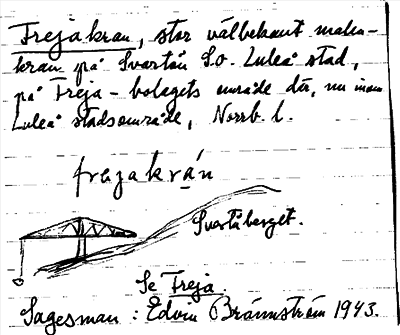 Frejakran, stor välbekant malm-
kran på Svartön S.o. Luleå stad,
på Freja-bolagets område där, nu inom
Luleå stadsområde, Norrb. l.
frejakrán
Svartåberget.
Se Freja.
Sagesman: Edvin Brännström 1943.